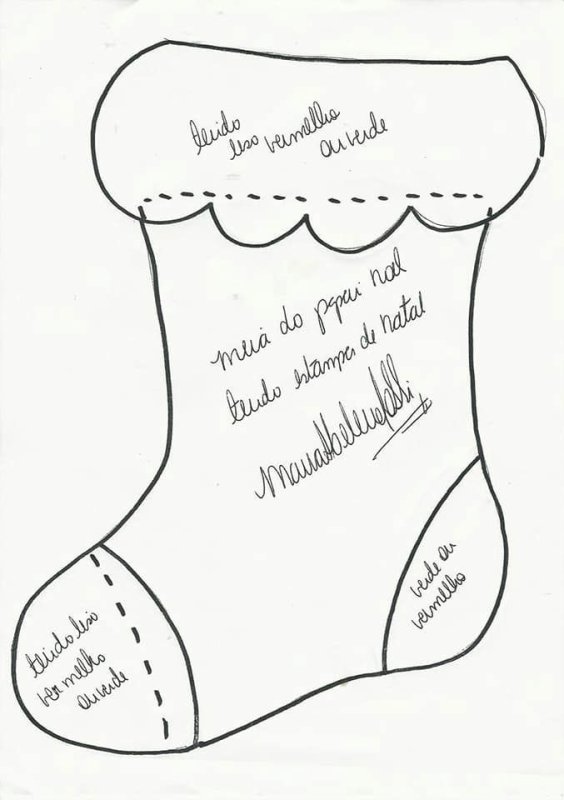 tecido
liso vermelho
ou verde
meia do papai noel
tecido estampas de natal
verde ou
vermelho
tecido liso
vermelho
ou verde